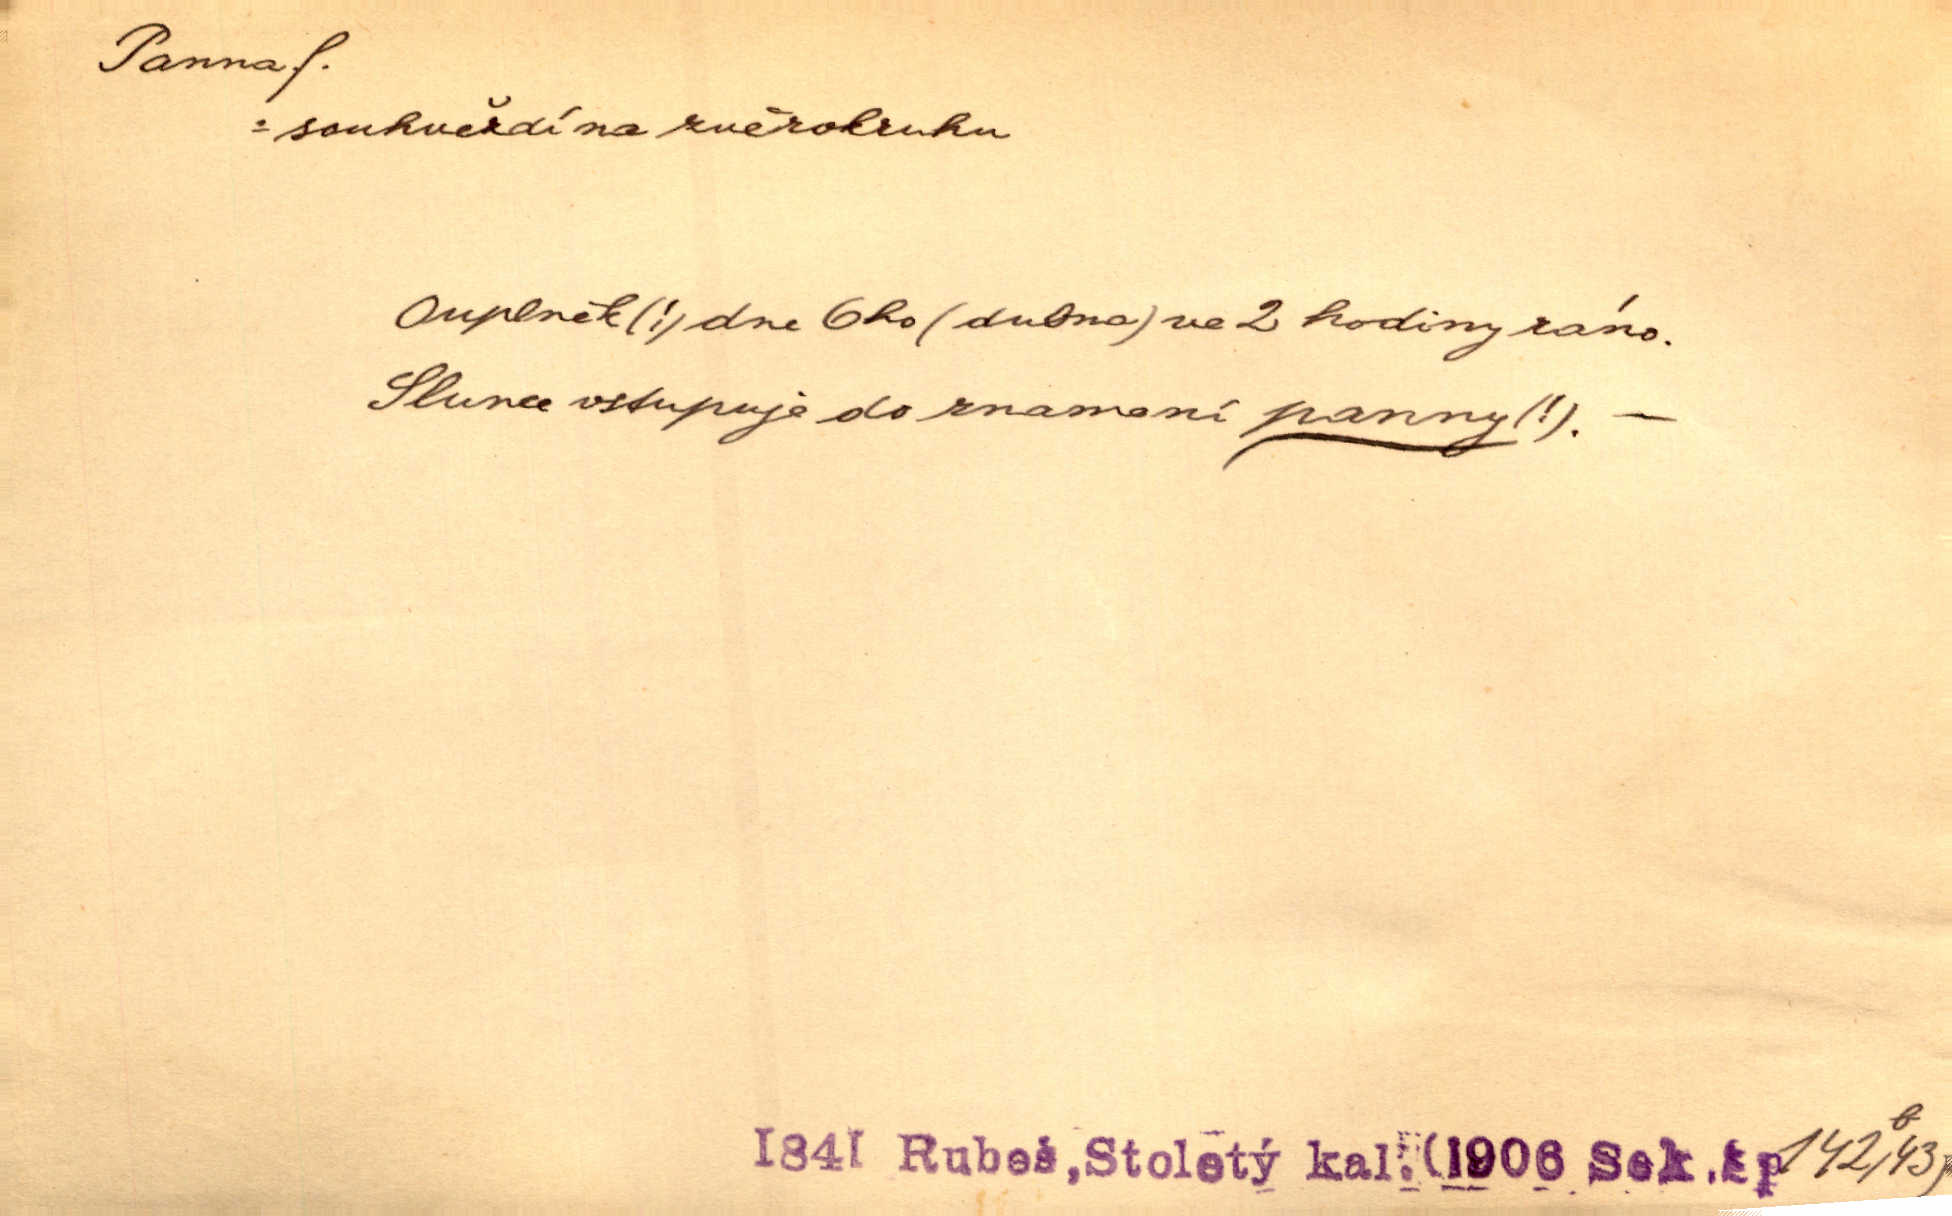 Panna f.
= souhvězdí na zvěrokruhu
Ouplněk (!) dne 6ho (dubna) ve 2 hodiny ráno.
Slunce vstupuje do znamení panny (!). —
1841 Rubeš, Stoletý kal. (1906 Sek. 142, 43)